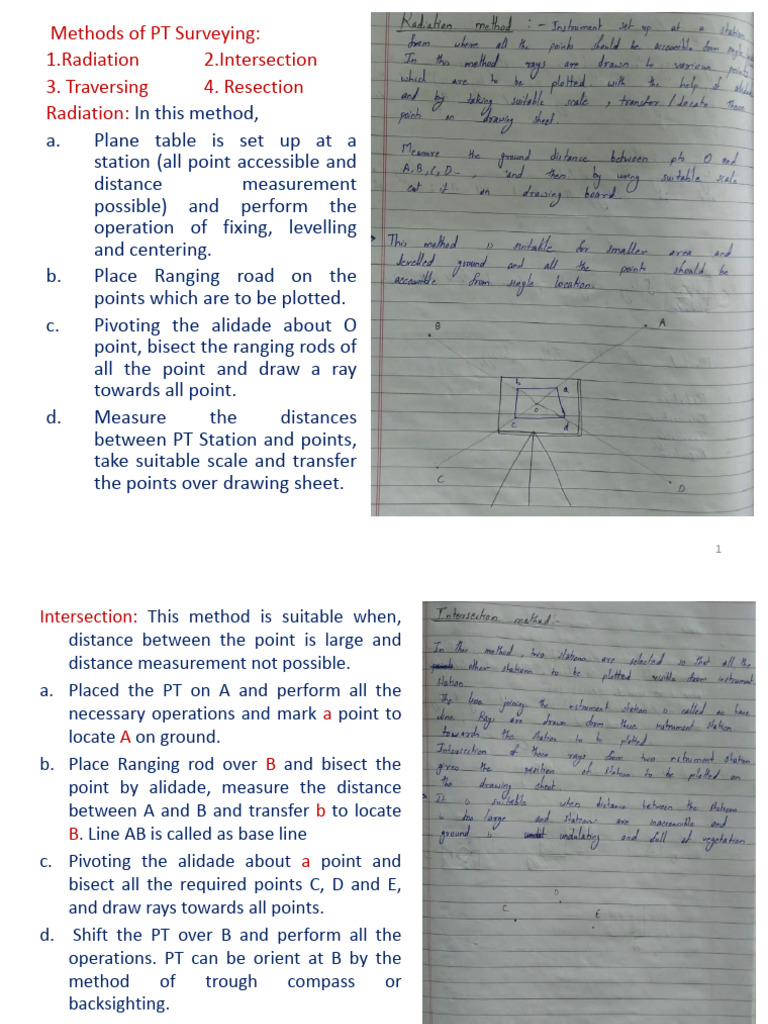 Methods of PT Surveying:
1.Radiation 2.Intersection
3. Traversing 4. Resection
Radiation: In this method,
a. Plane table is set up at a
station (all point accessible and
distance measurement
possible) and perform the
operation of fixing, levelling
and centering.
b. Place Ranging road on the
points which are to be plotted.
c. Pivoting the alidade about O
point, bisect the ranging rods of
all the point and draw a ray
towards all point.
d. Measure the distances
between PT Station and points,
take suitable scale and transfer
the points over drawing sheet.
Radiation method :- Instrument set up at a station
from where all the points should be accessible from single
In this method rays are drawn to various points
which are to be plotted with the help of alidade
and by taking suitable scale, transfer/Locate these
points on drawing sheet.
Measure the ground distance between pts O and
A, B, C, D and then by using suitable scale
cut it on drawing board
This method is suitable for smaller area and
levelled ground and all the points should be
accessible from single location.
B
A
b
a
o
c
d
C
D
1
Intersection: This method is suitable when,
distance between the point is large and
distance measurement not possible.
a. Placed the PT on A and perform all the
necessary operations and mark a point to
locate A on ground.
b. Place Ranging rod over B and bisect the
point by alidade, measure the distance
between A and B and transfer b to locate
B. Line AB is called as base line
c. Pivoting the alidade about a point and
bisect all the required points C, D and E,
and draw rays towards all points.
d. Shift the PT over B and perform all the
operations. PT can be orient at B by the
method of trough compass or
backsighting.
Intersection method:-
In this method, two stations are selected so that all the
other stations to be plotted visible from instrument
station.
The line joining the instrument station is called as base
line Rays are drawn from these instrument station
towards the station to be plotted
Intersection of these rays from two instrument station
gives the position of station to be plotted on
the drawing sheet
It is suitable when distance between the stations
is too large and stations are inaccessible and
ground is undulating and full of vegetation
D
C
E